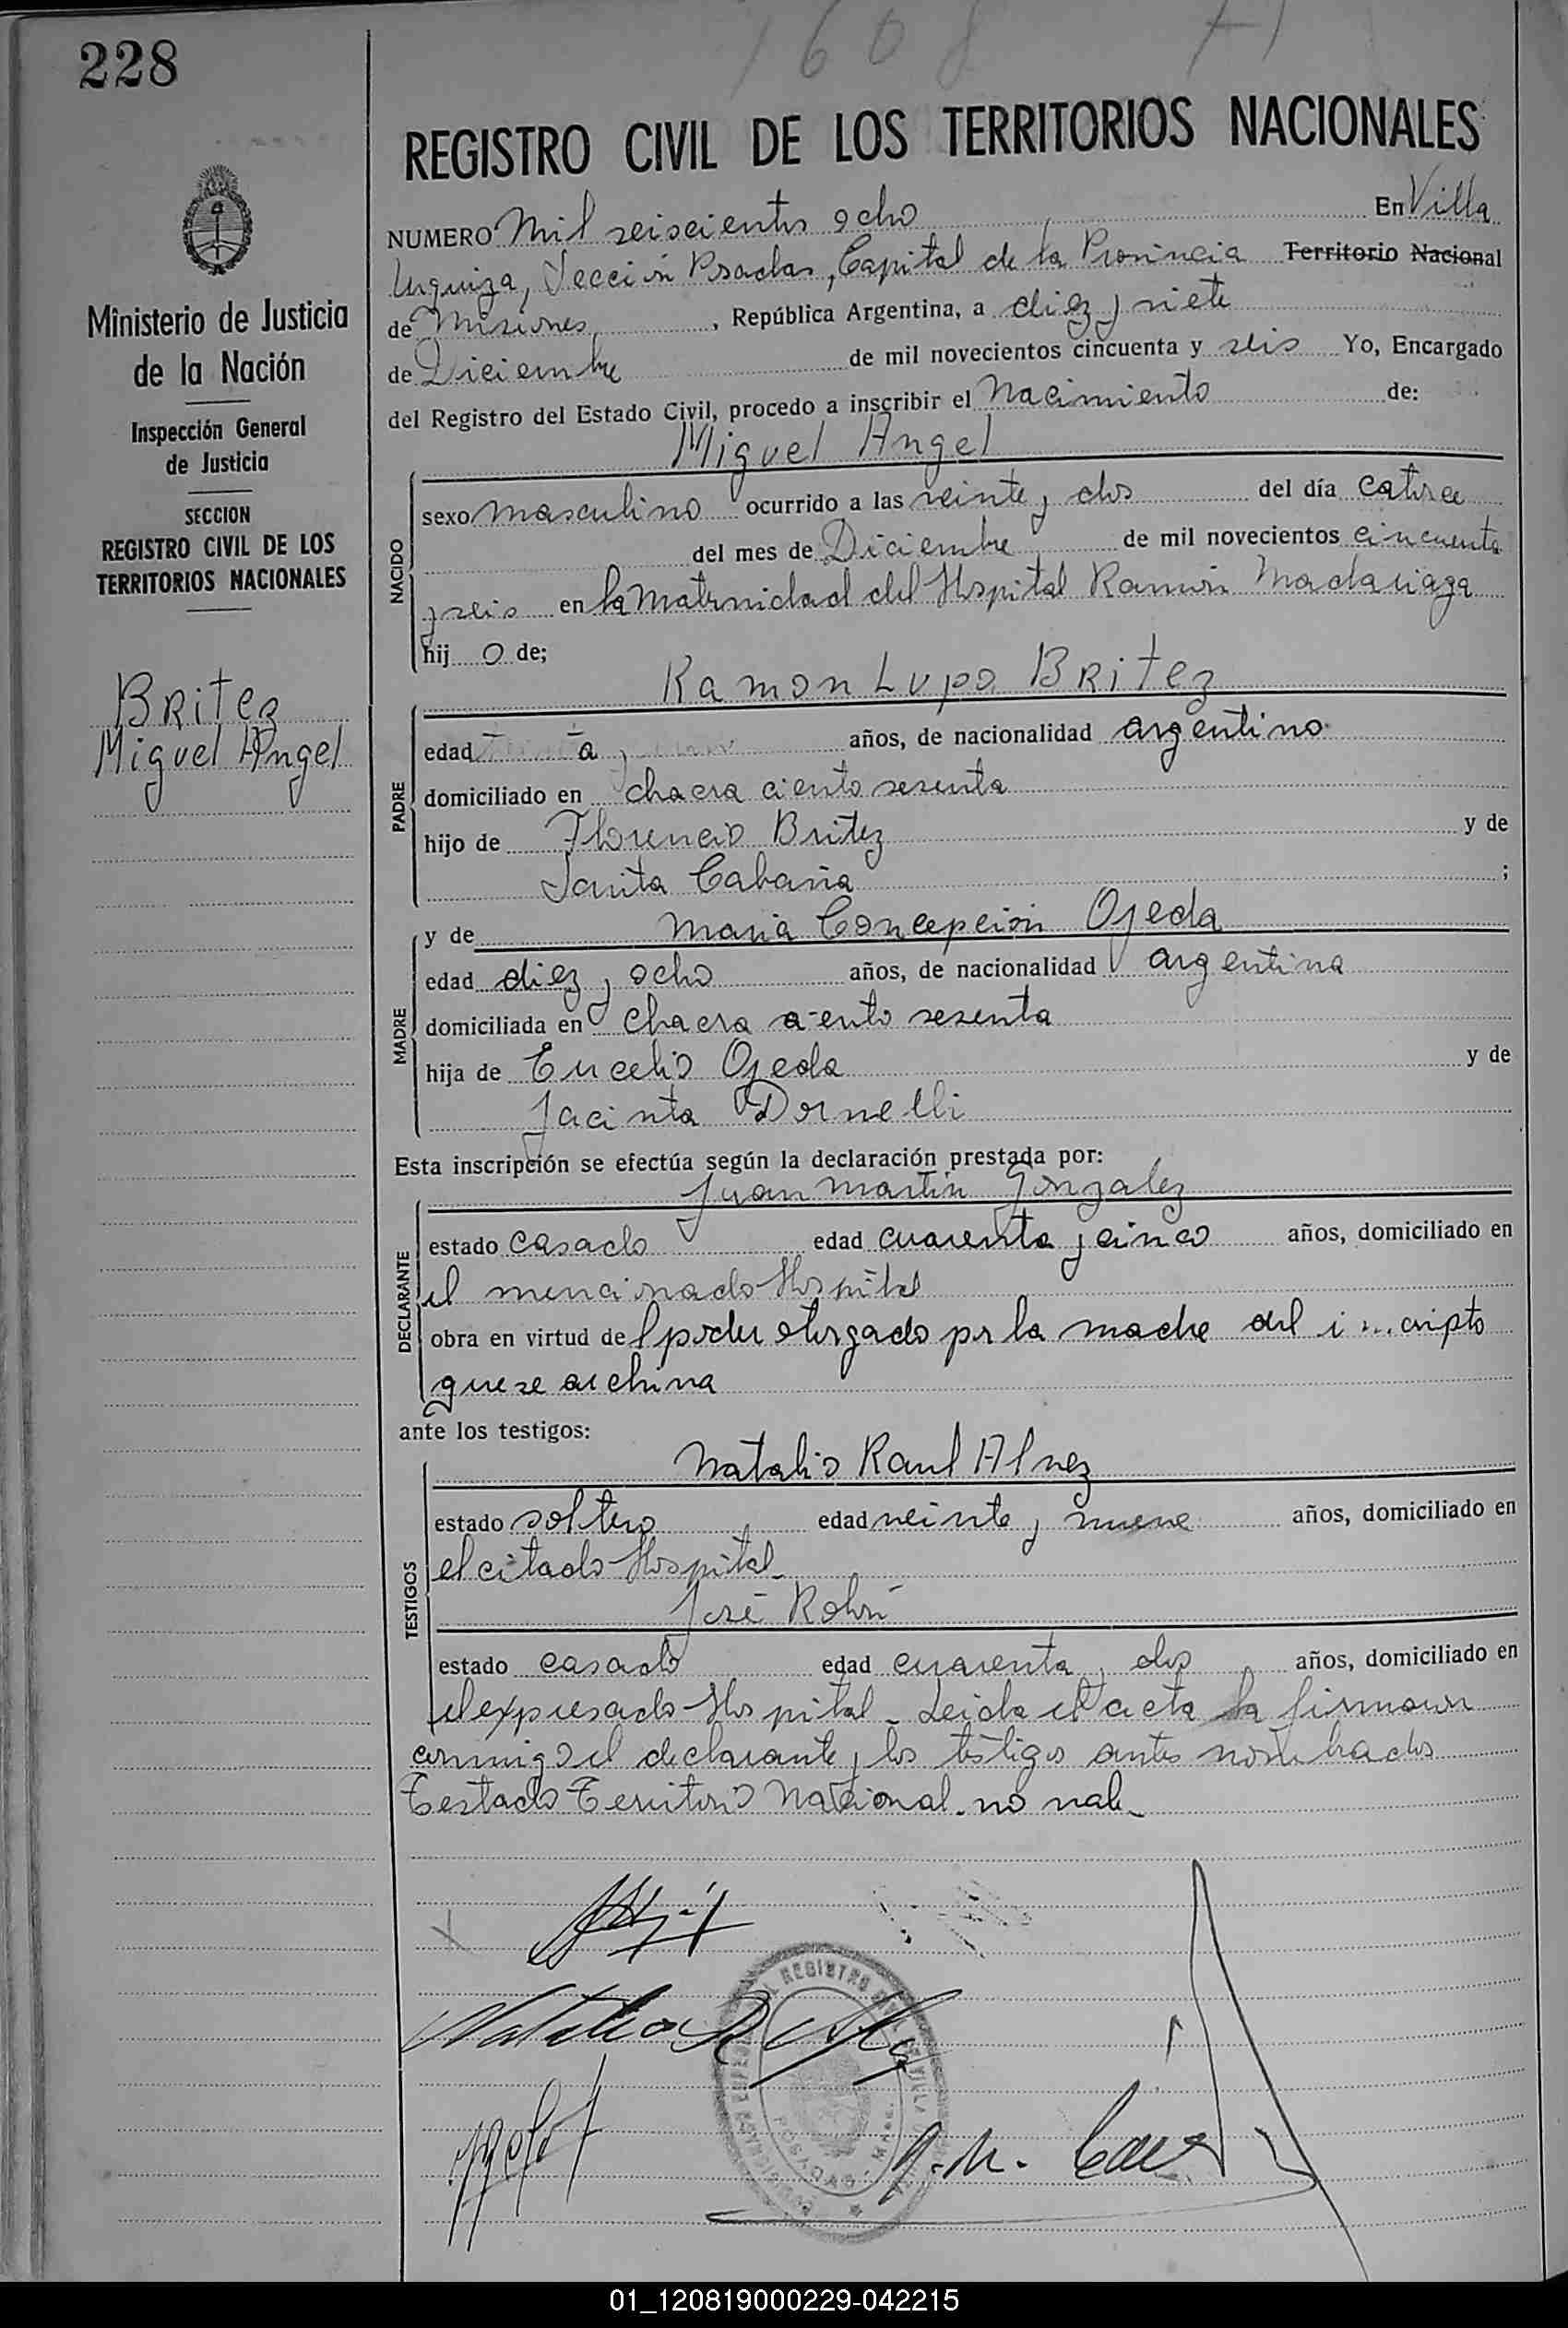 228
1608
REGISTRO CIVIL DE LOS TERRITORIOS NACIONALES
NUMERO Mil seiscientos ocho En Villa
Urquiza, Sección Posadas, Capital de la Provincia Territorio Nacional
de Misiones, República Argentina, a diez y siete
de Diciembre de mil novecientos cincuenta y seis Yo, Encargado
del Registro del Estado Civil, procedo a inscribir el Nacimiento de:
Miguel Angel
NACIDO
sexo masculino ocurrido a las veinte y dos del día catorce
del mes de Diciembre de mil novecientos cincuenta
y seis en la Maternidad del Hospital Ramón Madariaga
hij o de;
Ramon Lupo Britez
PADRE
edad años, de nacionalidad argentino
domiciliado en chacra ciento sesenta
hijo de Florencio Britez y de
Santa Cabaña ;
y de Maria Concepción Ojeda
MADRE
edad diez y ocho años, de nacionalidad argentina
domiciliada en chacra ciento sesenta
hija de Eucelio Ojeda y de
Jacinta Dornelli
Esta inscripción se efectúa según la declaración prestada por:
Juan Martin Gonzalez
DECLARANTE
estado casado edad cuarenta y cinco años, domiciliado en
el mencionado Hospital
obra en virtud del poder otorgado por la madre del inscripto
que se archiva
ante los testigos:
Natalio Raul
TESTIGOS
estado soltero edad veinte y nueve años, domiciliado en
el citado Hospital
José
estado casado edad cuarenta y dos años, domiciliado en
el expresado Hospital - Leida el acta la firmaron
conmigo el declarante y los testigos antes nombrados
Testado Territorio Nacional. no vale
Ministerio de Justicia
de la Nación
Inspección General
de Justicia
SECCION
REGISTRO CIVIL DE LOS
TERRITORIOS NACIONALES
Britez
Miguel Angel
REGISTRO
POSADAS
01_120819000229-042215